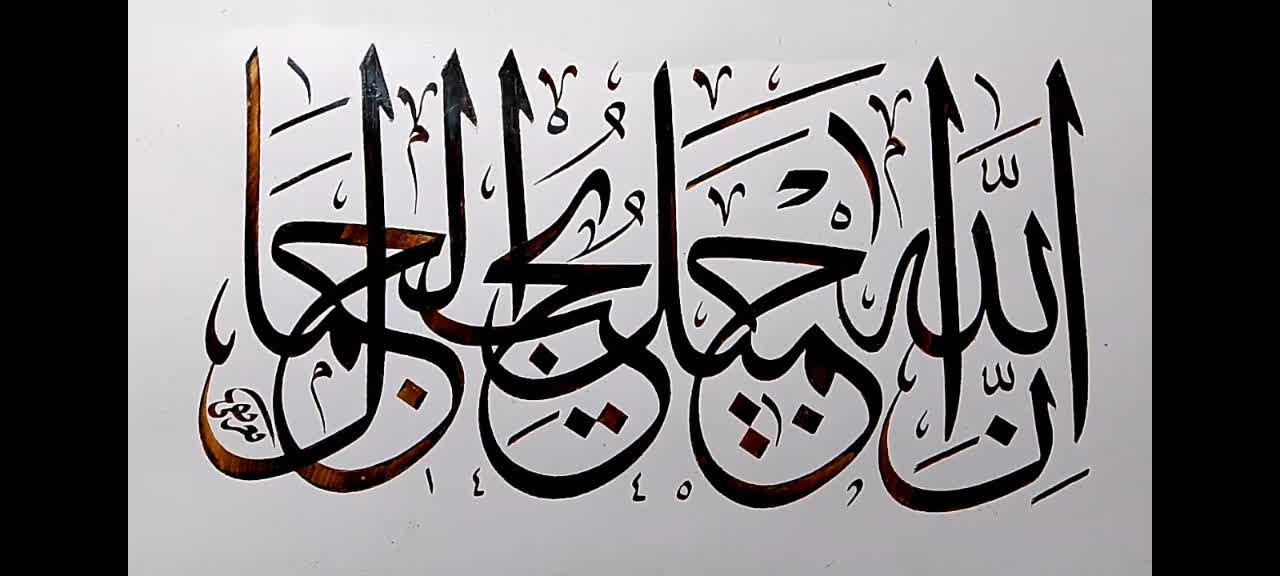 إِنَّ اللّٰهَ جَمِيْلٌ يُحِبُّ الْجَمَالَ
١٤٤٥